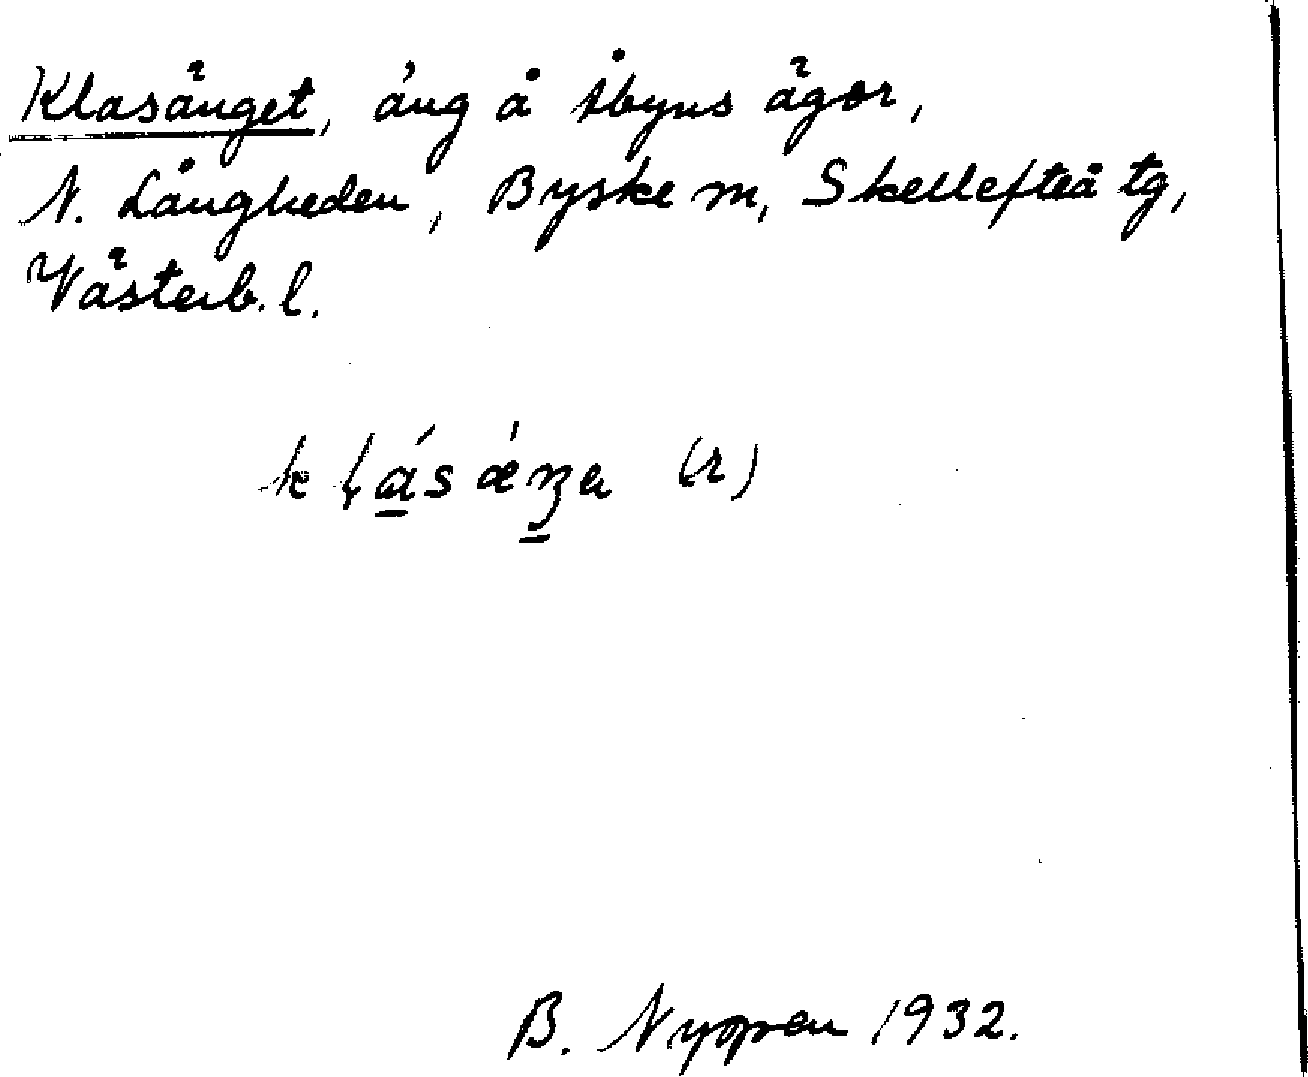 Klasänget, äng å Åbyns ägor,
N. Långheden, Byske sn, Skellefteå tg,
Västerb. l.
(r)
B. Nyopen 1932.